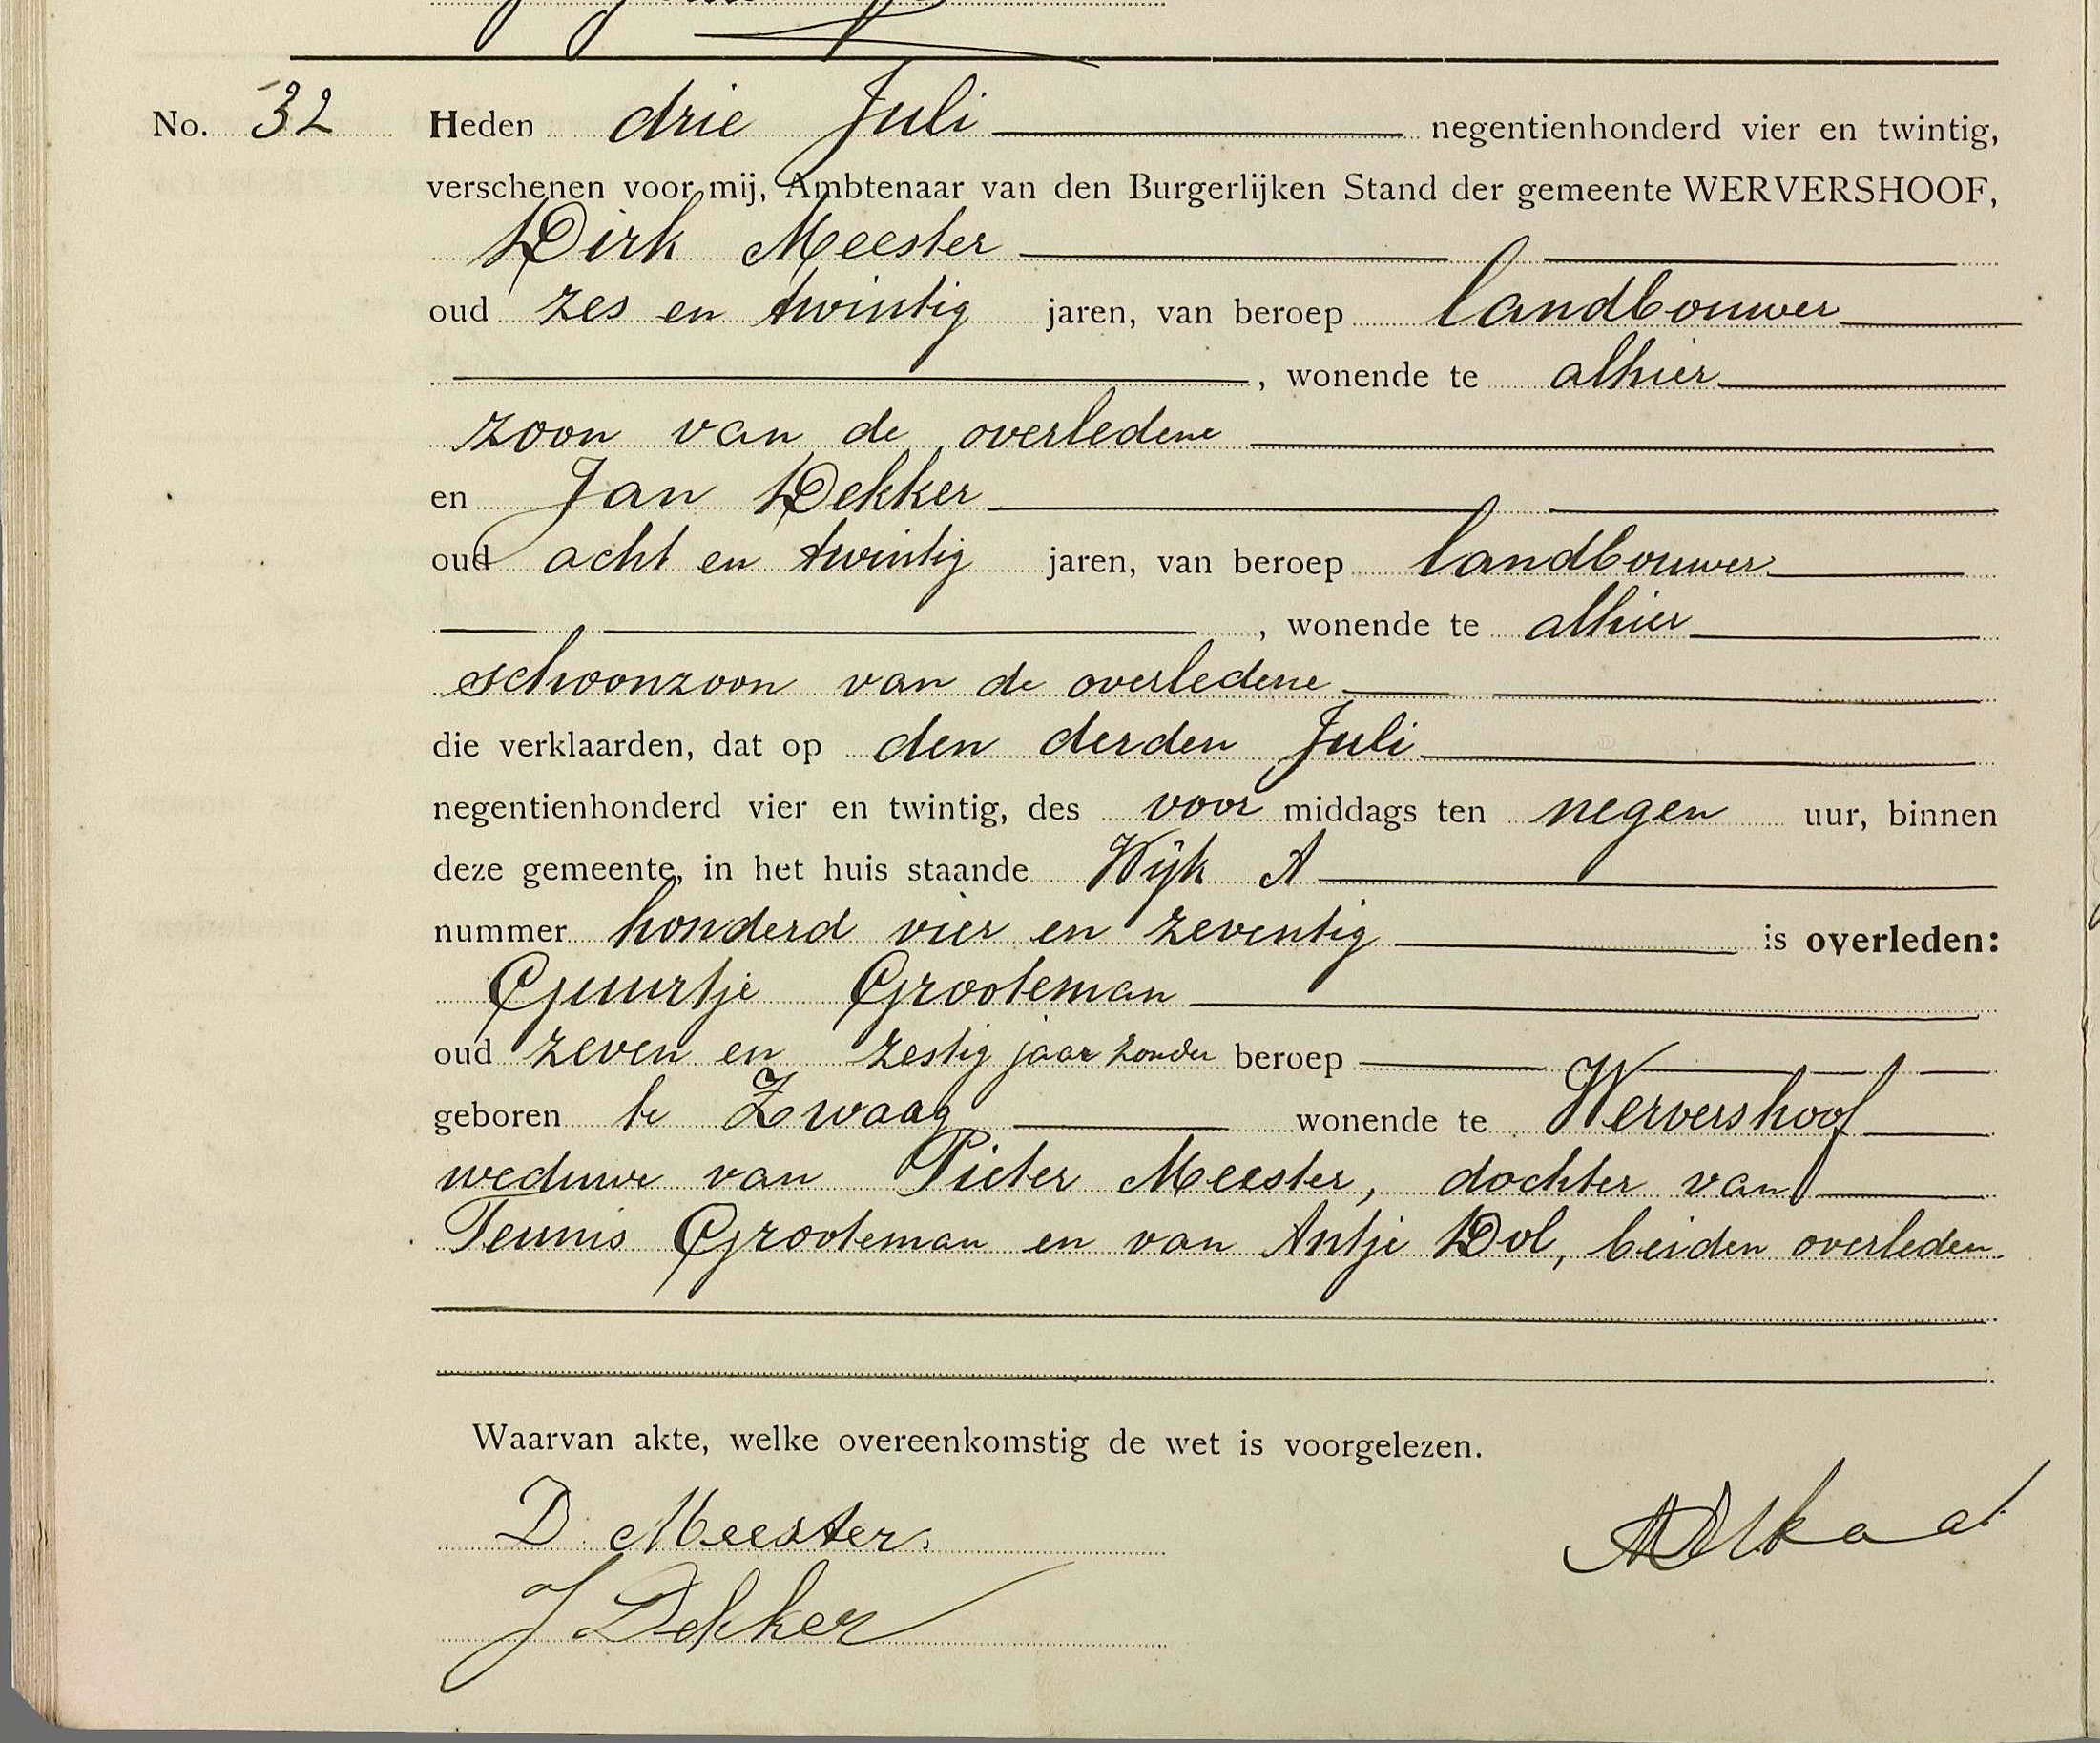 No. 32 Heden drie Juli negentienhonderd vier en twintig,
verschenen voor mij, Ambtenaar van den Burgerlijken Stand der gemeente WERVERSHOOF,
Dirk Meester
oud zes en twintig jaren, van beroep landbouwer
, wonende te alhier
zoon van de overledene
en Jan Dekker
oud acht en twintig jaren, van beroep landbouwer
, wonende te alhier
schoonzoon van de overledene
die verklaarden, dat op den derden Juli
negentienhonderd vier en twintig, des voor middags ten negen uur, binnen
deze gemeente, in het huis staande Wijk A
nummer honderd vier en zeventig is overleden:
Guurtje Grooteman
oud zeven en zestig jaar zonder beroep
geboren te Zwaag wonende te Wervershoof
weduwe van Pieter Meester, dochter van
Teunis Grooteman en van Antje Dol, beiden overleden.
Waarvan akte, welke overeenkomstig de wet is voorgelezen.
D. Meester.
J Dekker